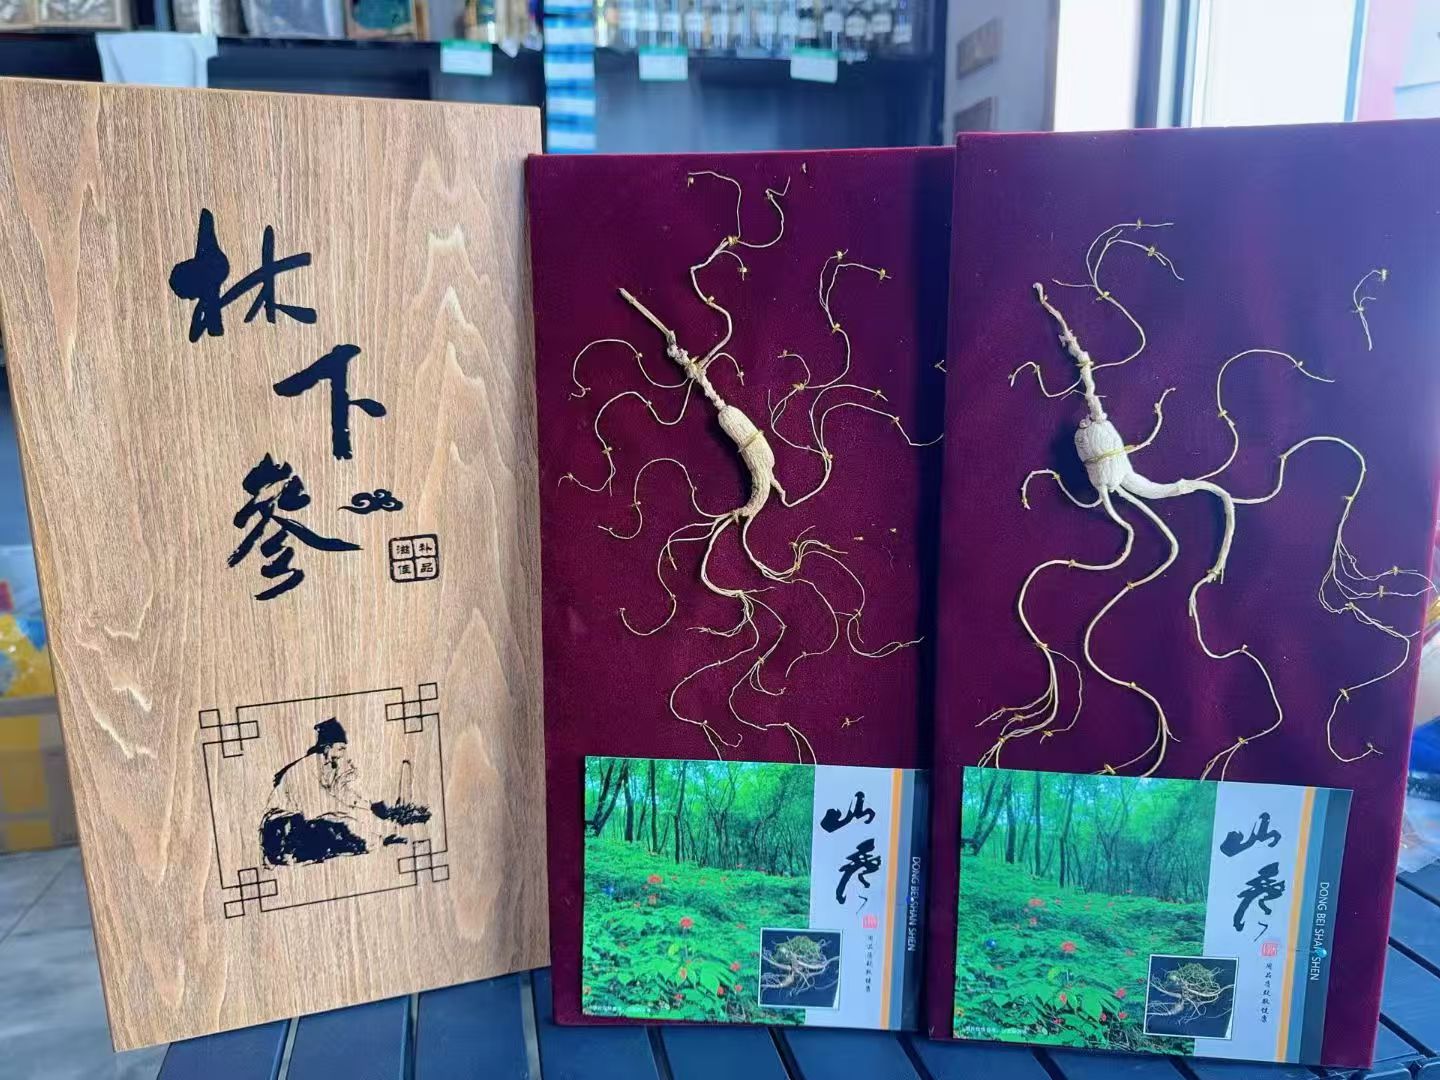 林下参
滋补
佳品
山参
DONG BEI SHAN SHEN
山参
DONG BEI SHAN SHEN